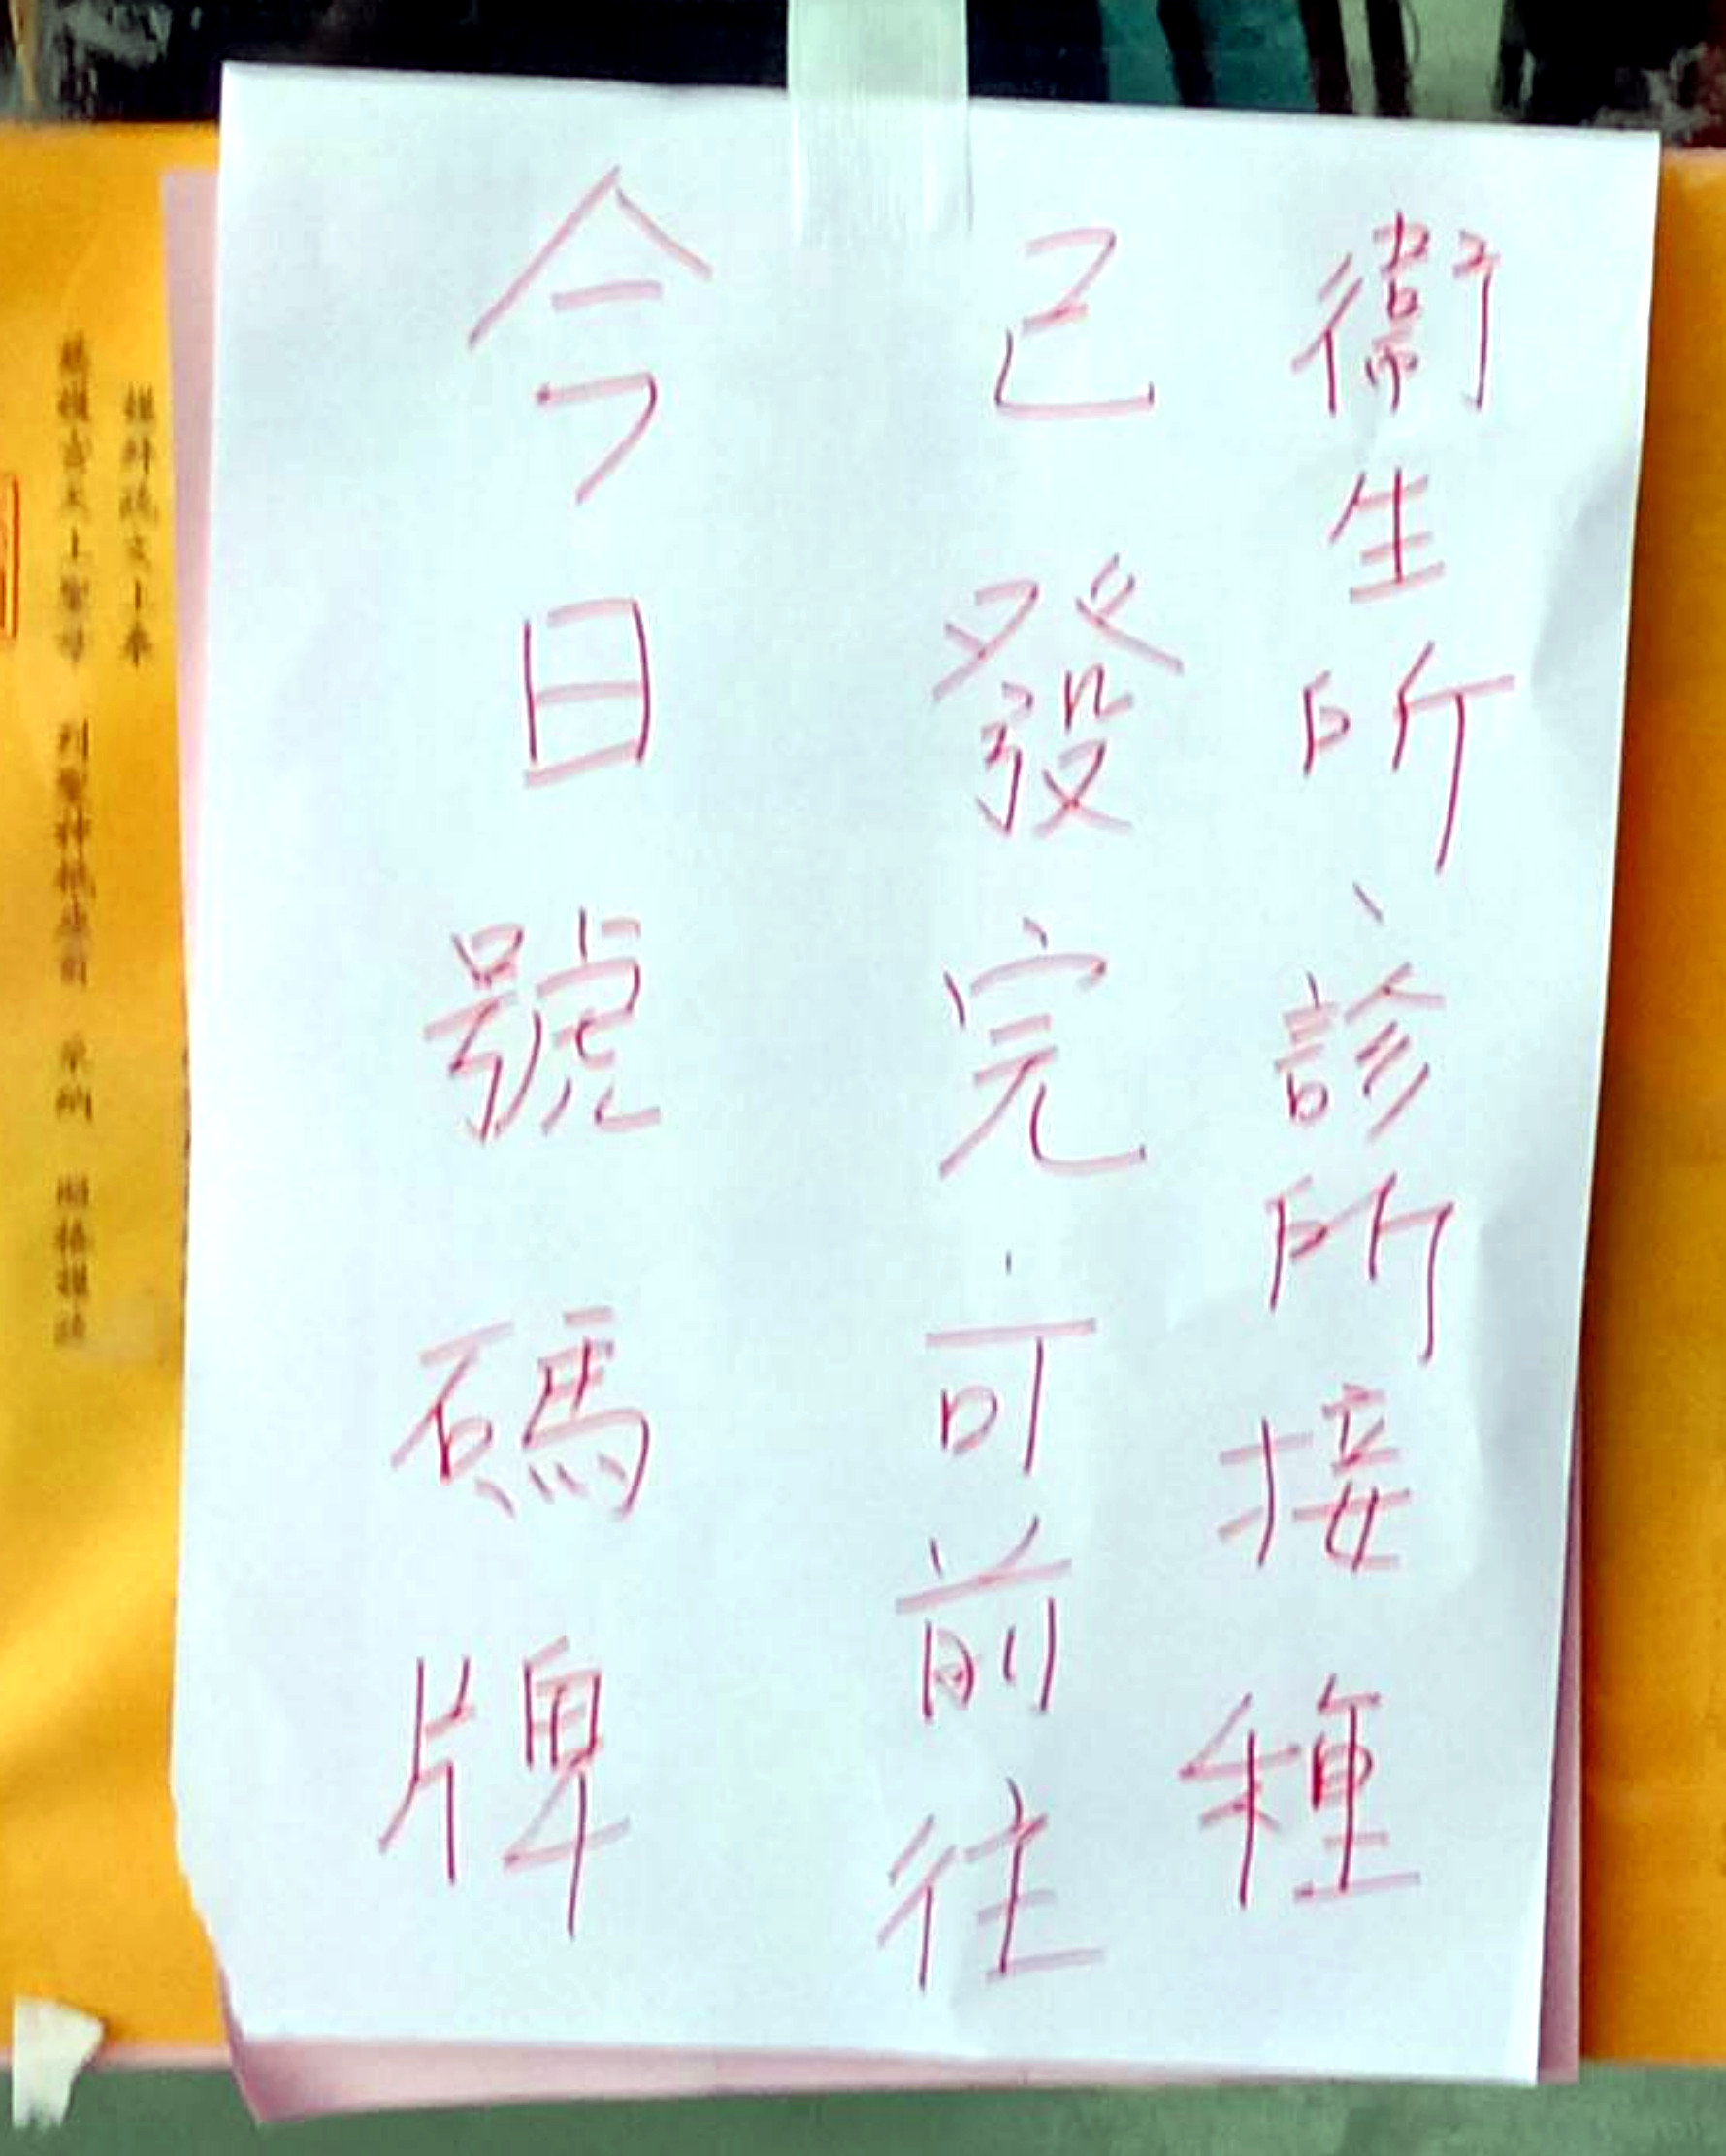 今日號碼牌
已發完，可前往
衛生所、診所接種